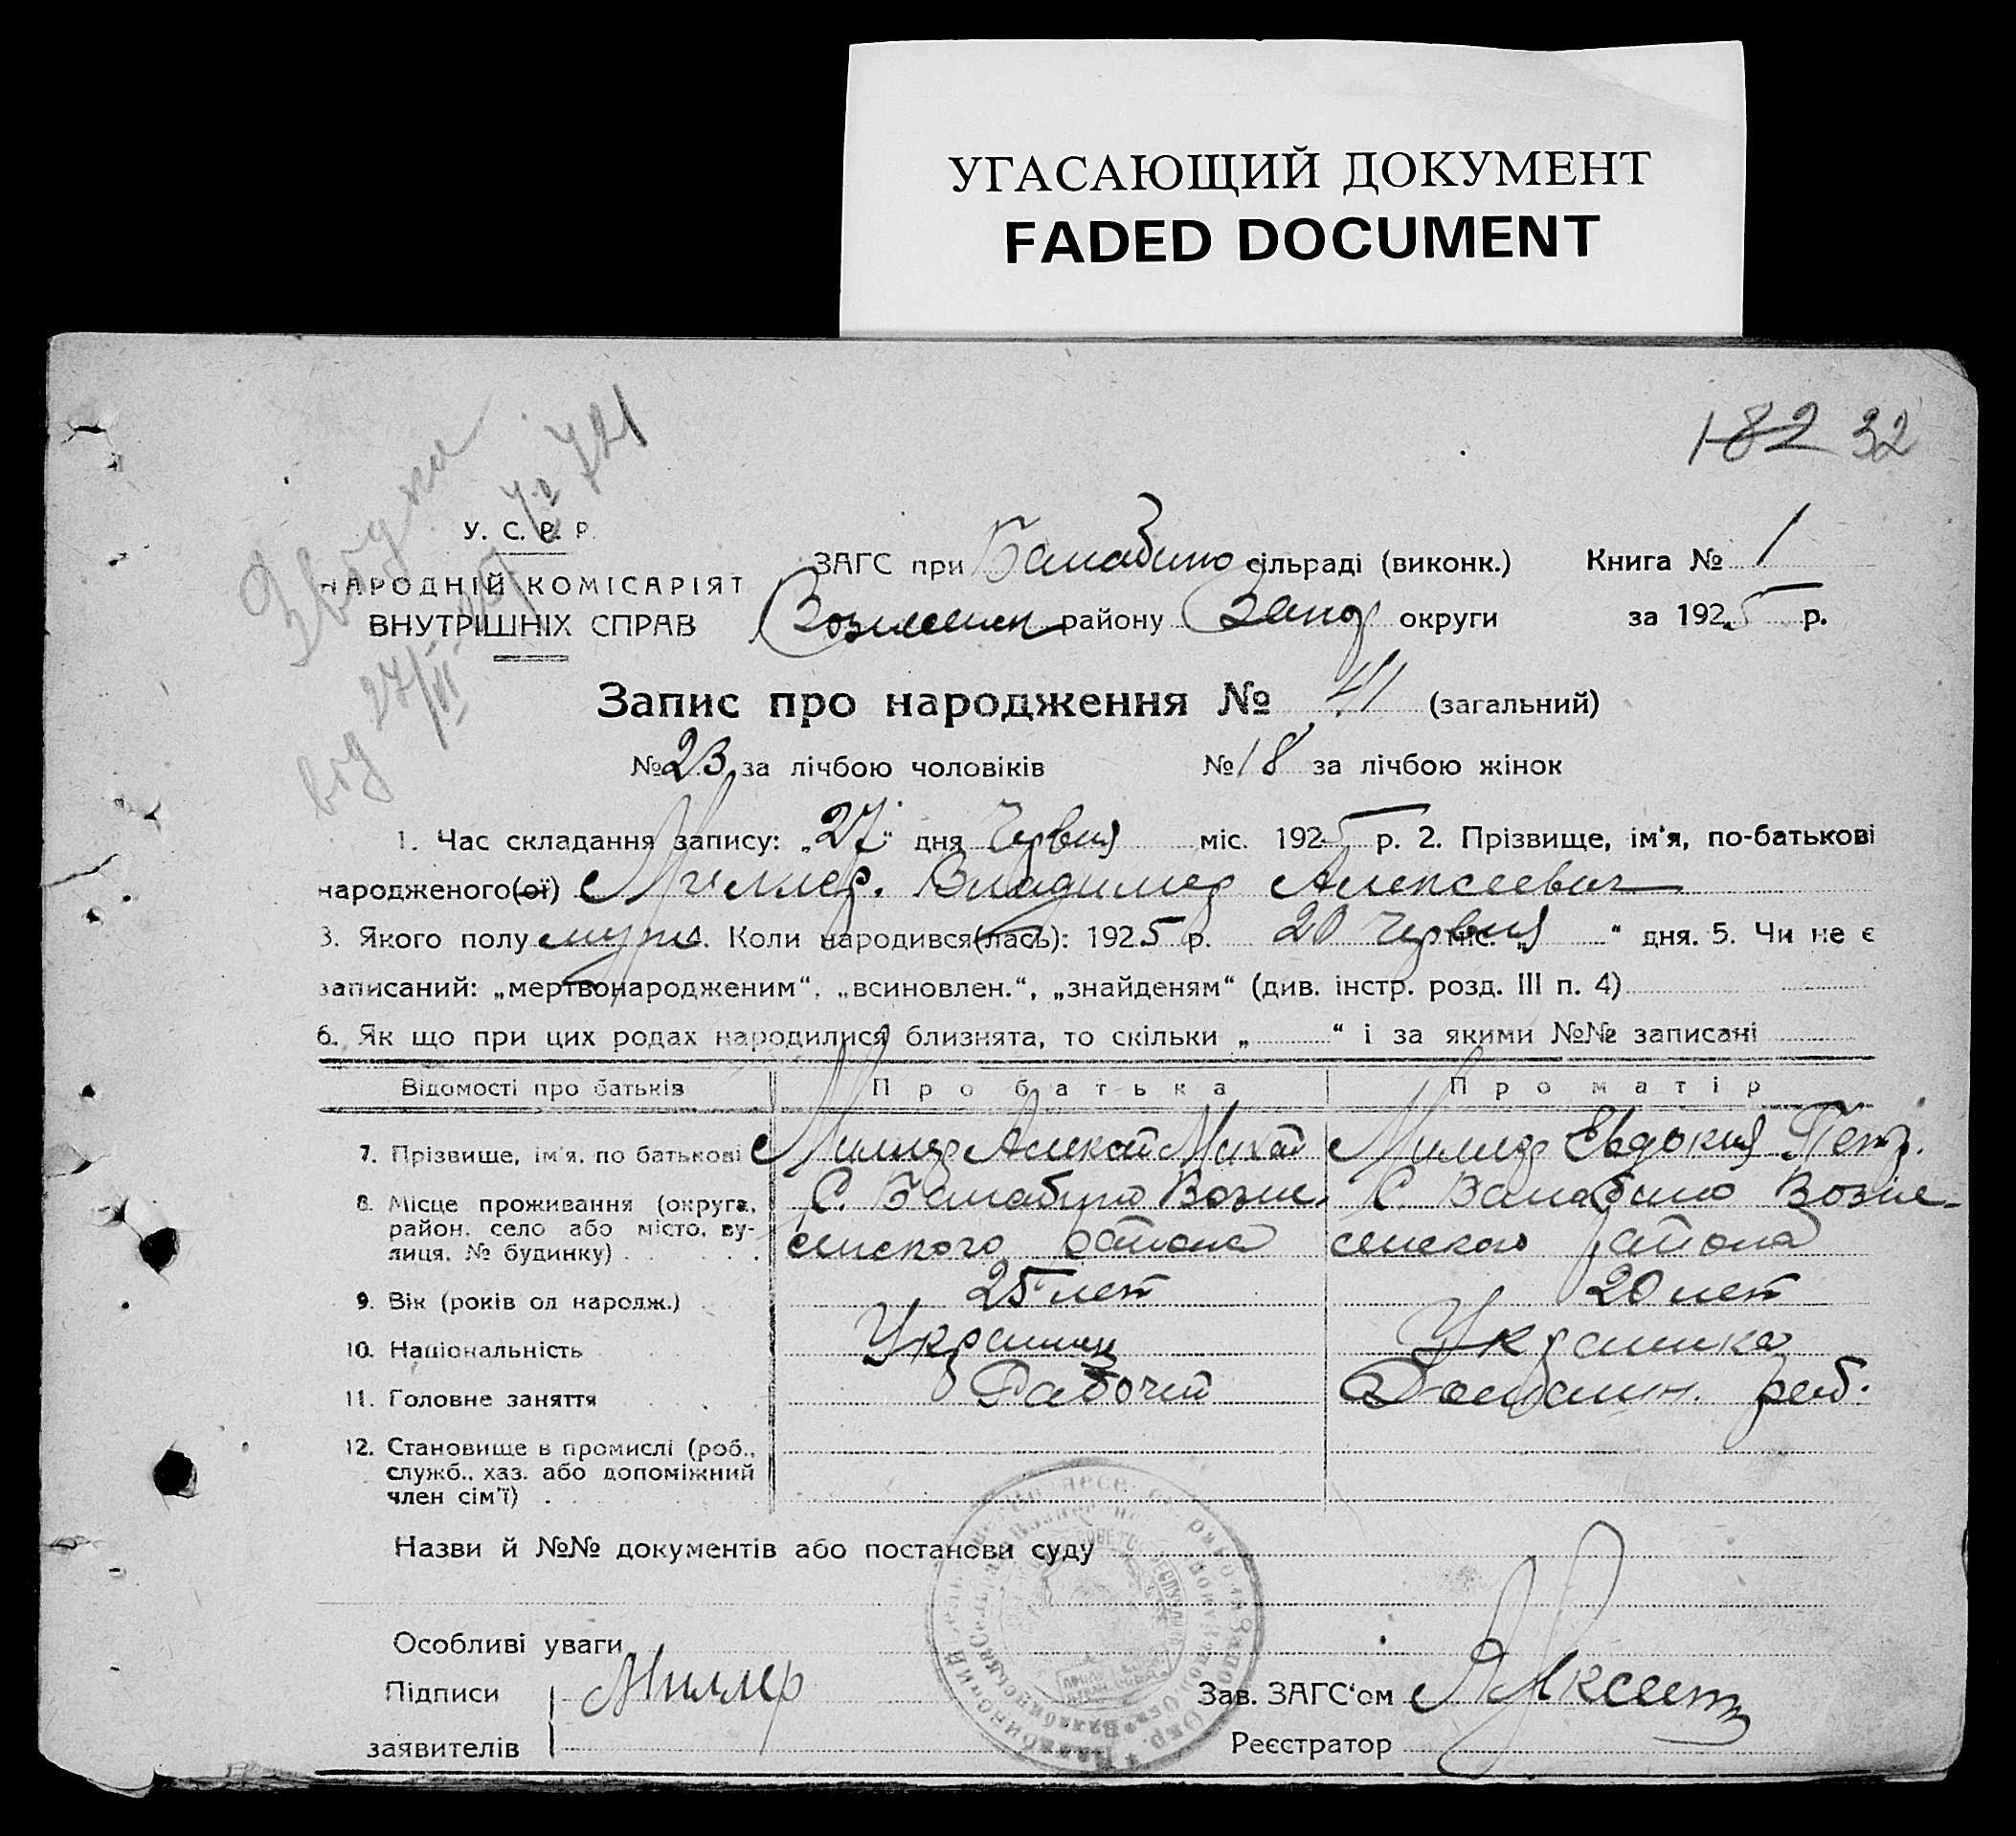 УГАСАЮЩИЙ ДОКУМЕНТ
FADED DOCUMENT
182 32
У. С. Р. Р.
НАРОДНІЙ КОМІСАРІЯТ
ВНУТРІШНІХ СПРАВ
ЗАГС при Балабино сільраді (виконк.) Книга № 1
Вознесенск району Запор округи за 1925 р.
Запис про народження № 41 (загальний)
№ 23 за лічбою чоловіків № 18 за лічбою жінок
1. Час складання запису: „27“ дня Червня міс. 1925 р. 2. Прізвище, ім'я, по-батькові
народженого(ої) Миллер. Владимер Алексеевич
3. Якого полу муж 4. Коли народився(лась): 1925 р. 20 Червня міс. „ “ дня. 5. Чи не є
записаний: „мертвонародженим“, „всиновлен.“, „знайденям“ (див. інстр. розд. III п. 4)
6. Як що при цих родах народилися близнята, то скільки „ “ і за якими №№ записані
Відомості про батьків Про батька Про матір
7. Прізвище, ім'я, по батькові Миллер Алексей Михай Миллер Евдокия Петр.
8. Місце проживання (округа, район, село або місто, вулиця, № будинку) С. Балабино Возне- С. Балабино Возне-
сенского района сенского района
9. Вік (років од народж.) 25 лет 20 лет
10. Національність Украинец Украинка
11. Головне заняття Рабочий Домашн. раб.
12. Становище в промислі (роб.,
служб., хаз. або допоміжний
член сім'ї)
Назви й №№ документів або постанови суду
Особливі уваги
Підписи Миллер Зав. ЗАГС'ом
заявителів Реєстратор